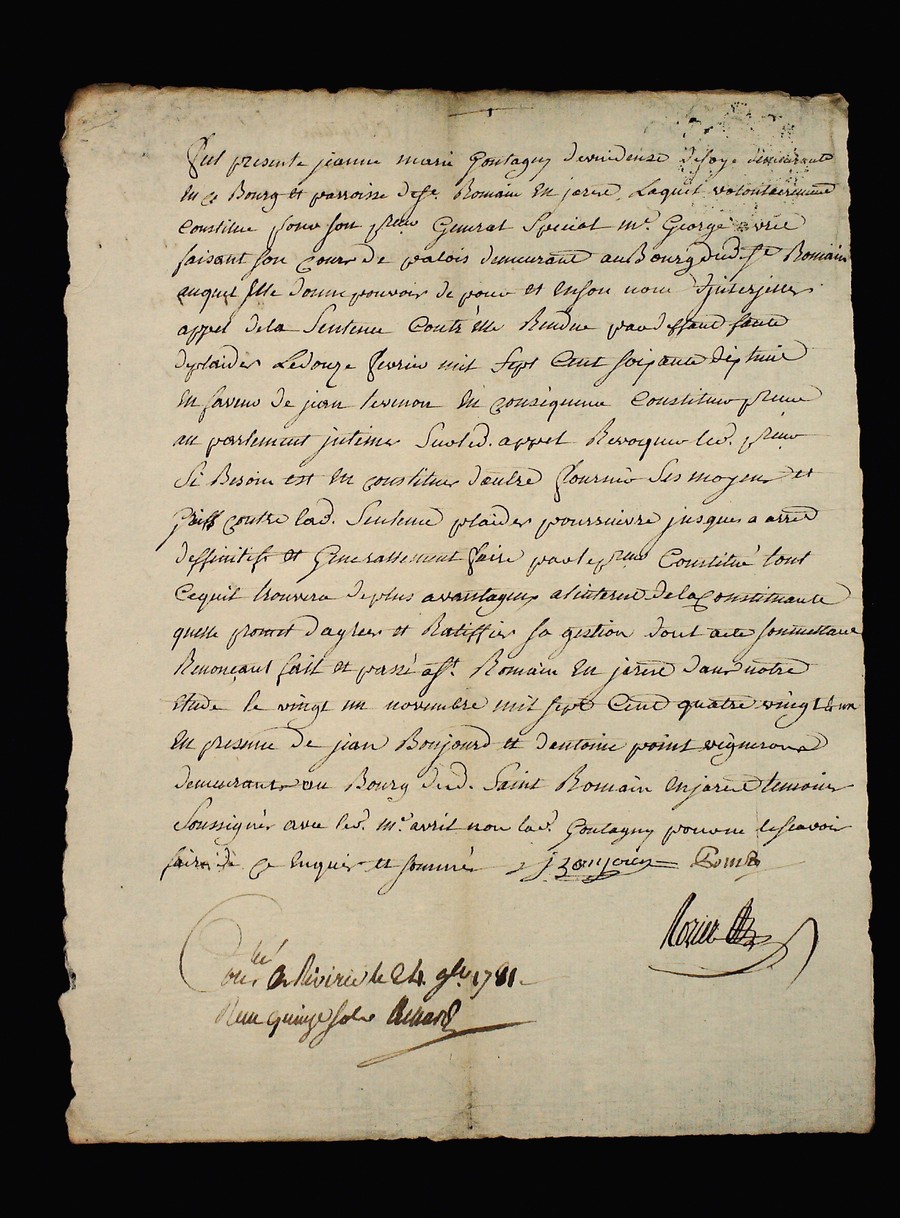 fut presente jeanne marie Goutagny devuideuse de soye demeurante
en ce Bourg et parroisse de St. Romain en jarest Laquel volontairement
constitue pour son preur General Special me. George avril
faisant son cours de palais demeurant au Bourg dud. St Romain
auquel Elle donne pouvoir de pour et en son nom d'jnterjetter
appel de la Sentence Contr'elle Rendue par deffaut faute
de plaider Le douze fevrier mil sept Cent soixante dix huit
en faveur de jean En consequence Constituer preur
au parlement jntimer Sur led. appel Revoquer led. preur
Si Besoin est en constituer d'autre fournir Ses moyens et
griefs contre lad. Sentence plaider poursuivre jusques a arret
deffinitif et Generallement faire par le preur Constitué tout
ce quil trouvera de plus avantageux a linteret de la Constituante
quelle promet d'agreer et Ratiffier sa gestion dont acte soumettant
Renonçant fait et passé a St. Romain en jarest dans notre
etude le vingt un novembre mil sept Cent quatre vingt & un
en presence de jean Bonjourd et d'antoine point vignerons
demeurants au Bourg dud. Saint Romain en jarest temoins
Soussignés avec led. me. avril non lad. Goutagny pour ne le scavoir
faire de ce Enquise et sommée j Bonjour Point
Rozier
Collé
a Riverie le 24. 9bre 1781
Reçu quinze sols